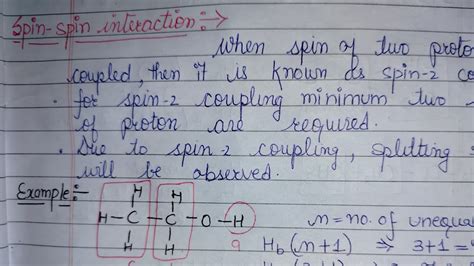 Spin-spin interaction:→
When spin of two proto
coupled, then it is known as spin-2 co
for spin-2 coupling minimum two
of proton are required.
• Due to spin-2 coupling, splitting
will be observed.
Example:-
H H
H-C-C-O-H
H H
a
n=no. of unequa
Hb(n+1) ⇒ 3+1=